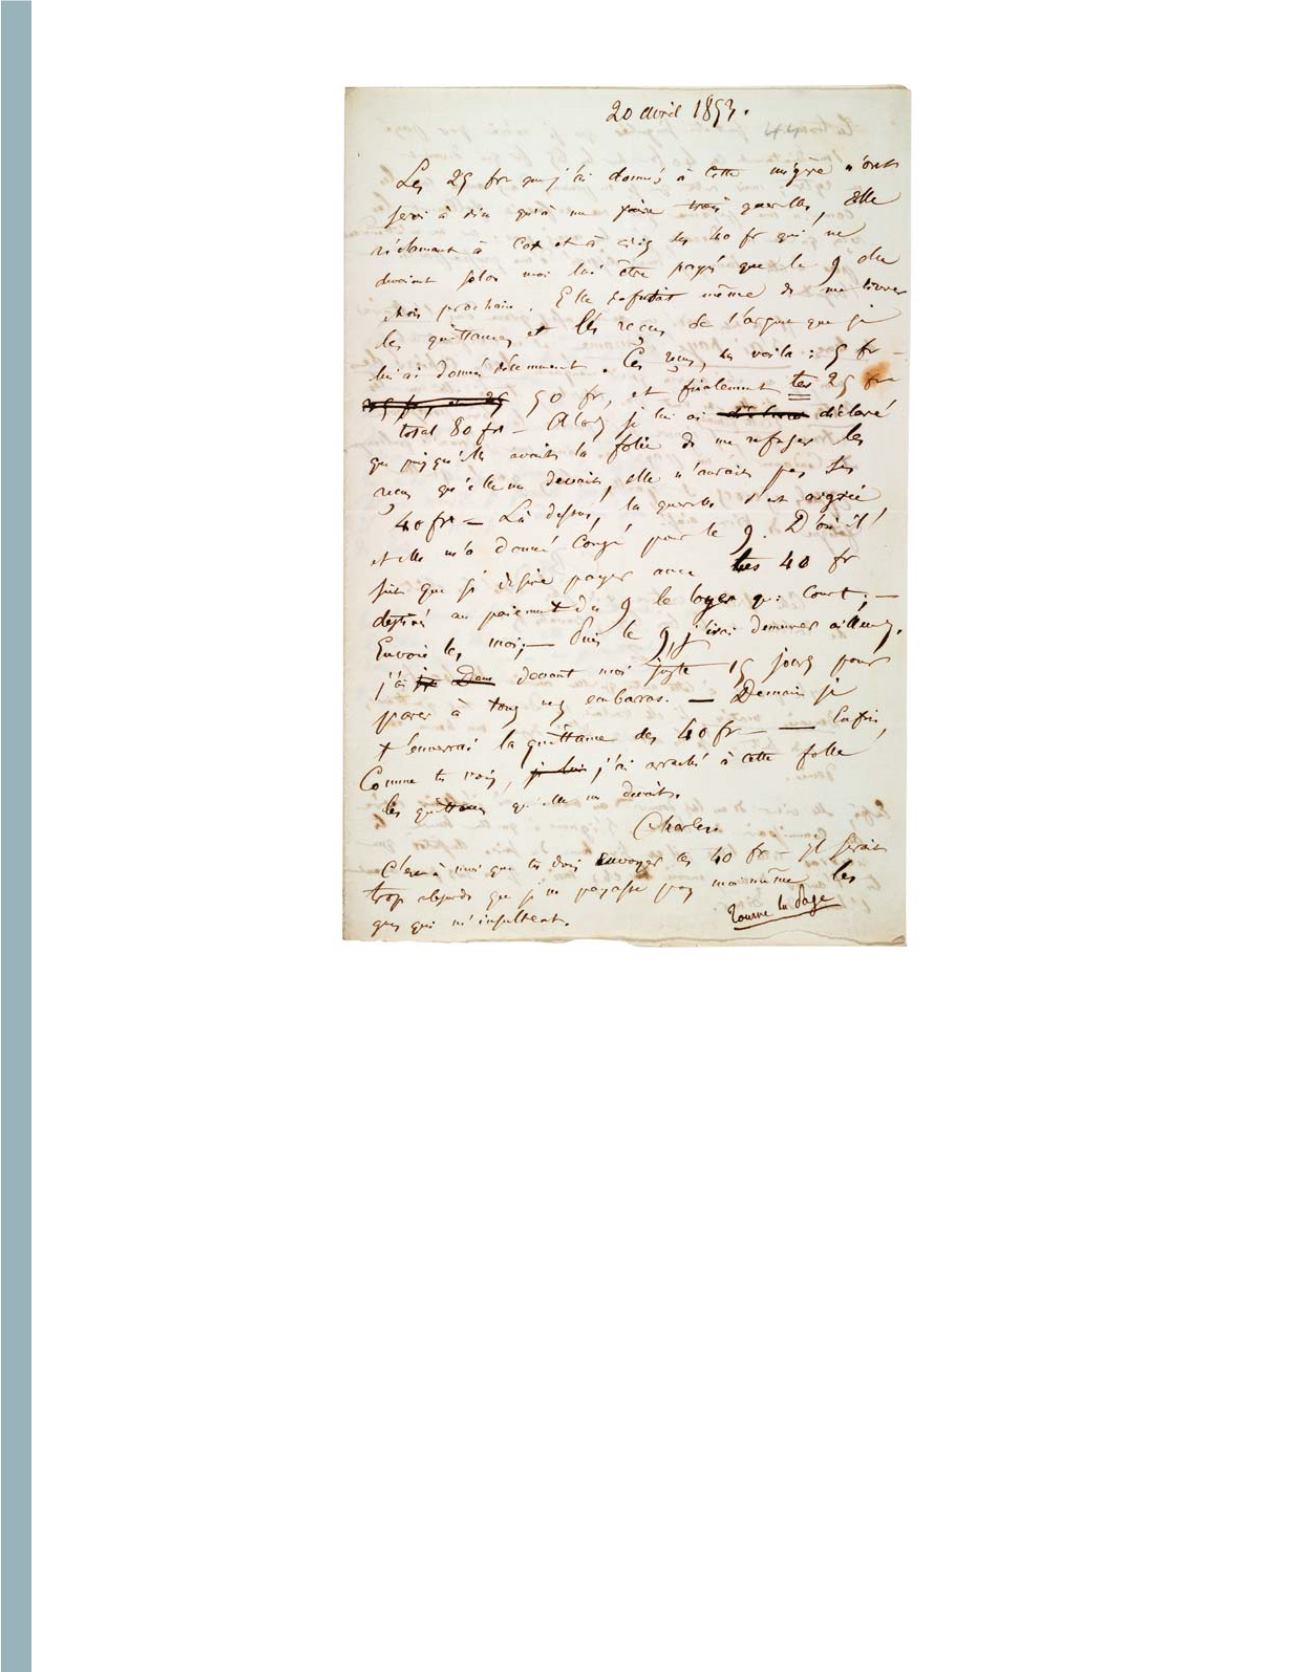 20 avril 1853.
Les 25 fr que j'ai donnés à cette mégère n'ont
servi à rien qu'à me faire trois querelles, Elle
réclamant à cor et à cris les 40 fr qui ne
devaient selon moi lui être payés que le 9 du
mois prochain. Elle refusait même de me livrer
les quittances et les reçus de l'argent que je
lui ai donné récemment. Ces reçus, les voilà : 5 fr –
50 fr, et finalement tes 25 fr
total 80 fr – Alors je lui ai déclaré
que puisqu'elle avait la folie de me refuser les
reçus qu'elle me devait, elle n'aurait pas ses
40 fr – Là dessus, la querelle s'est aigrie
et elle m'a donné congé pour le 9. D'où il
suit que je désire payer avec tes 40 fr
destinés au paiement du 9 le loyer qui court ; –
Envoie les moi ; – Puis le 9, j'irai demeurer ailleurs,
j'ai devant moi juste 15 jours pour
parer à tous mes embarras. – Demain je
t'enverrai la quittance des 40 fr – – Enfin,
Comme tu vois, j'ai arraché à cette folle
les quittances qu'elle me devait.
Charles.
C'est à moi que tu dois envoyer les 40 fr – Il serait
trop absurde que je ne payasse pas moi même les
gens qui m'insultent.
Tourne la Page